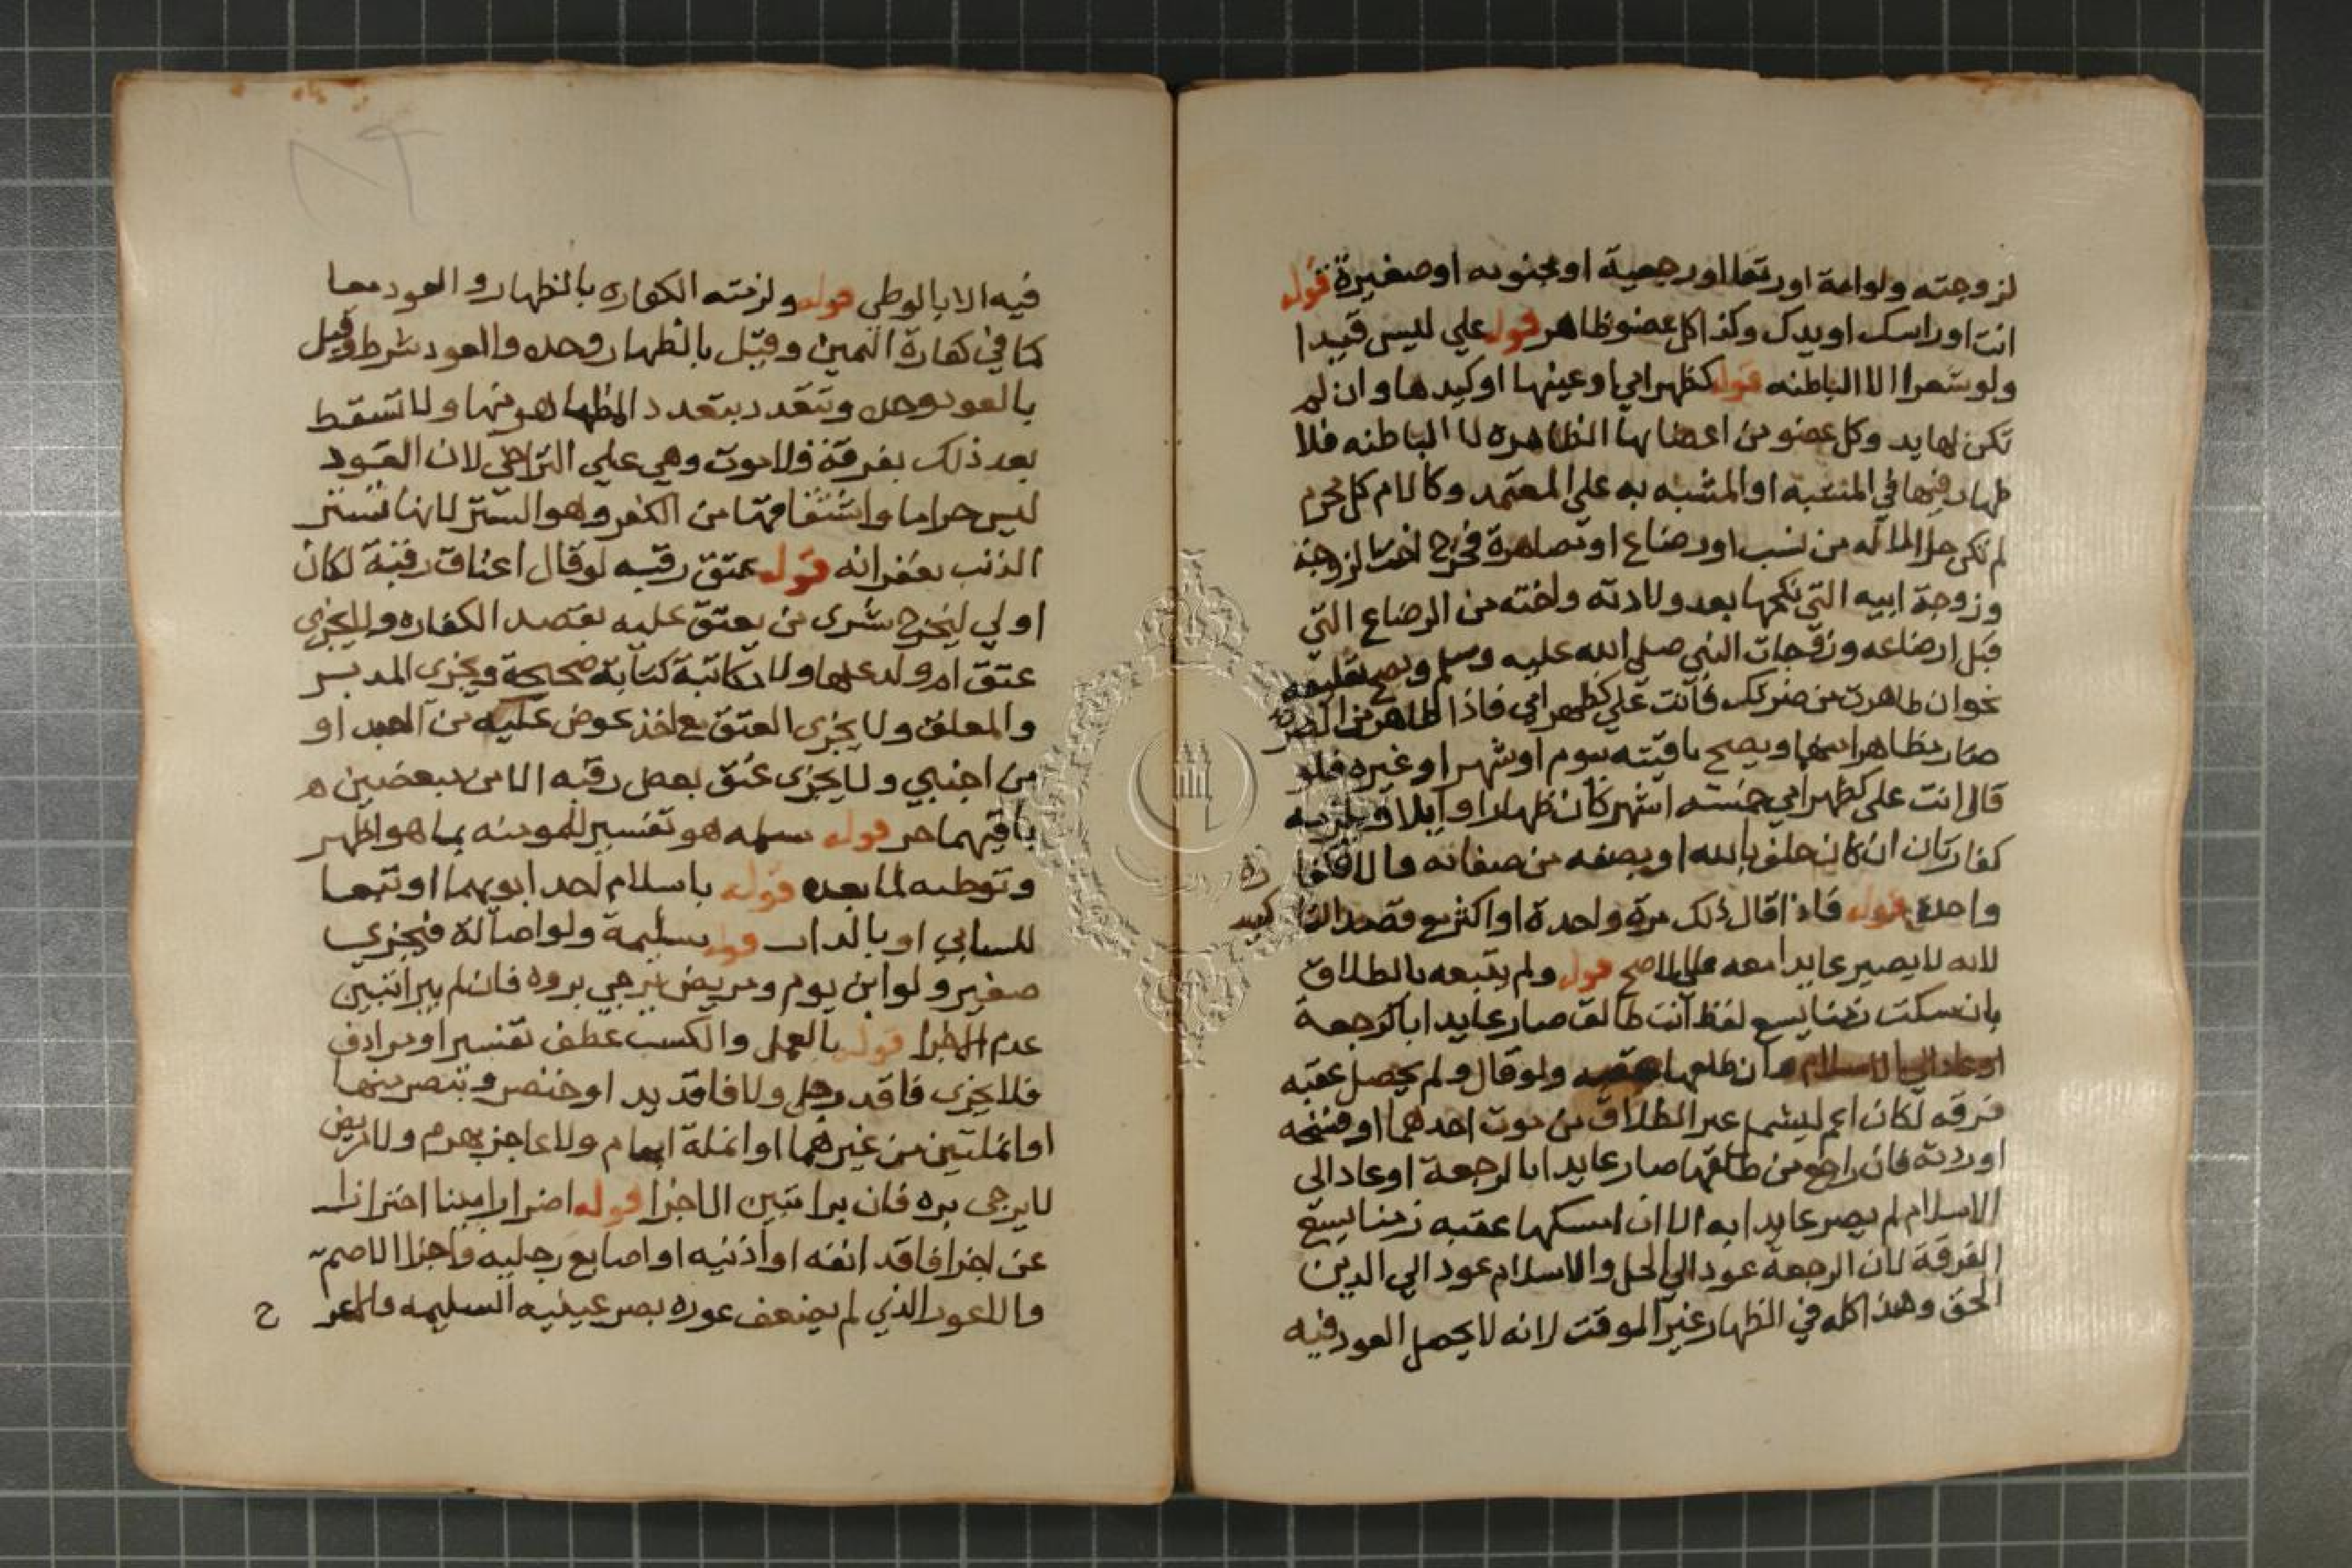 لزوجته ولو امة او رتقا او رجعية او مجنونه او صغيرة قوله
انت او راسك او يدك وكذا كل عضو ظاهر قوله علي ليس قيدا
ولو شعرا لا الباطنه قوله كظهر امي او عينها او كيدها وان لم
تكن لها يد وكل عضو من اعضايها الظاهره لا الباطنه فلا
ظهار فيها في المشبه او المشبه به علي المعتمد وكالام كل محرم
لم تكن حلالا له من نسب او رضاع او مصاهرة فخرج اخت لزوجته
وزوجة ابيه التي نكحها بعد ولادته واخته من الرضاع التي
قبل ارضاعه وزوجات النبي صلي الله عليه وسلم ويصح تعليقه
نحو ان ظاهرت من ضرتك فانت علي كظهر امي فاذا ظاهر من الضرة
صار مظاهرا منهما ويصح تاقيته بيوم او شهر او غيره فلو
قال انت علي كظهر امي خمسته اشهر كان ظهارا وايلا ويلزمه
كفارتان ان كان حلف بالله او بصفه من صفاته والا فكفا رة
واحدة قوله فاذا قال ذلك مرة واحدة او اكثر مع قصد التا كيد
لانه لا يصير عايدا معه علي الاصح قوله ولم يتبعه بالطلاق
بان سكت زمنا يسع لفظ انت طالق صار عايدا بالرجعة
او عاد الي الاسلام وان طلقها عقبه ولو قال ولم يحصل عقبه
فرقه لكان اعم ليشمل غير الطلاق من موت احدهما او فسخه
او ردته فان راجع من طلقها صار عايدا بالرجعة او عاد الي
الاسلام لم يصر عايدا به الا ان امسكها عقبه زمنا يسع
الفرقة لان الرجعة عود الي الحل والاسلام عود الي الدين
الحق وهذا كله في الظهار غير الموقت لانه لا يحصل العود فيه
فيه الا بالوطي قوله ولزمته الكفاره بالظهار والعود معا
كما في كفارة اليمين وقيل بالظهار وحده والعود شرط وقيل
بالعود وحده وتتعدد بتعدد المظاهر منها ولا تسقط
بعد ذلك بفرقة ولا موت وهي علي التراخي لان العود
ليس حراما واشتقاقها من الكفر وهو الستر لانها تستر
الذنب بغفرانه قوله عتق رقبه لو قال اعتاق رقبة لكان
اولي ليخرج شري من يعتق عليه بقصد الكفاره ولا يجزي
عتق ام ولد عنها ولا مكاتبة كتابة صحيحة ويجزي المدبر
والمعلق ولا يجزي العتق مع اخذ عوض عليه من العبد او
من اجنبي ولا يجزي عتق بعض رقبه الا من مبعضين
باقيهما حر قوله سليمه هو تفسير للمومنه بما هو اظهر
وتوطيه لما بعده قوله باسلام احد ابويهما او تبعا
للسابي او بالدار قوله سليمة ولو اصالة فيجزي
صغير ولو ابن يوم ومريض يرجي بروه فان لم يبرا تبين
عدم الاجزا قوله بالعمل والكسب عطف تفسير او مرادف
فلا يجزي فاقد رجل ولا فاقد يد او خنصر وبنصر منها
او انملتين من غيرهما او انملة ابهام ولا عاجز بهرم ولا مريض
لا يرجي بره فان برا تبين الاجزا قوله اضرارا بينا احترازا
عن اجزا فاقد انفه او اذنيه او اصابع رجليه واجزا الاصم
والاعور الذي لم يضعف عوره بصر عينيه السليمه والاعر ج